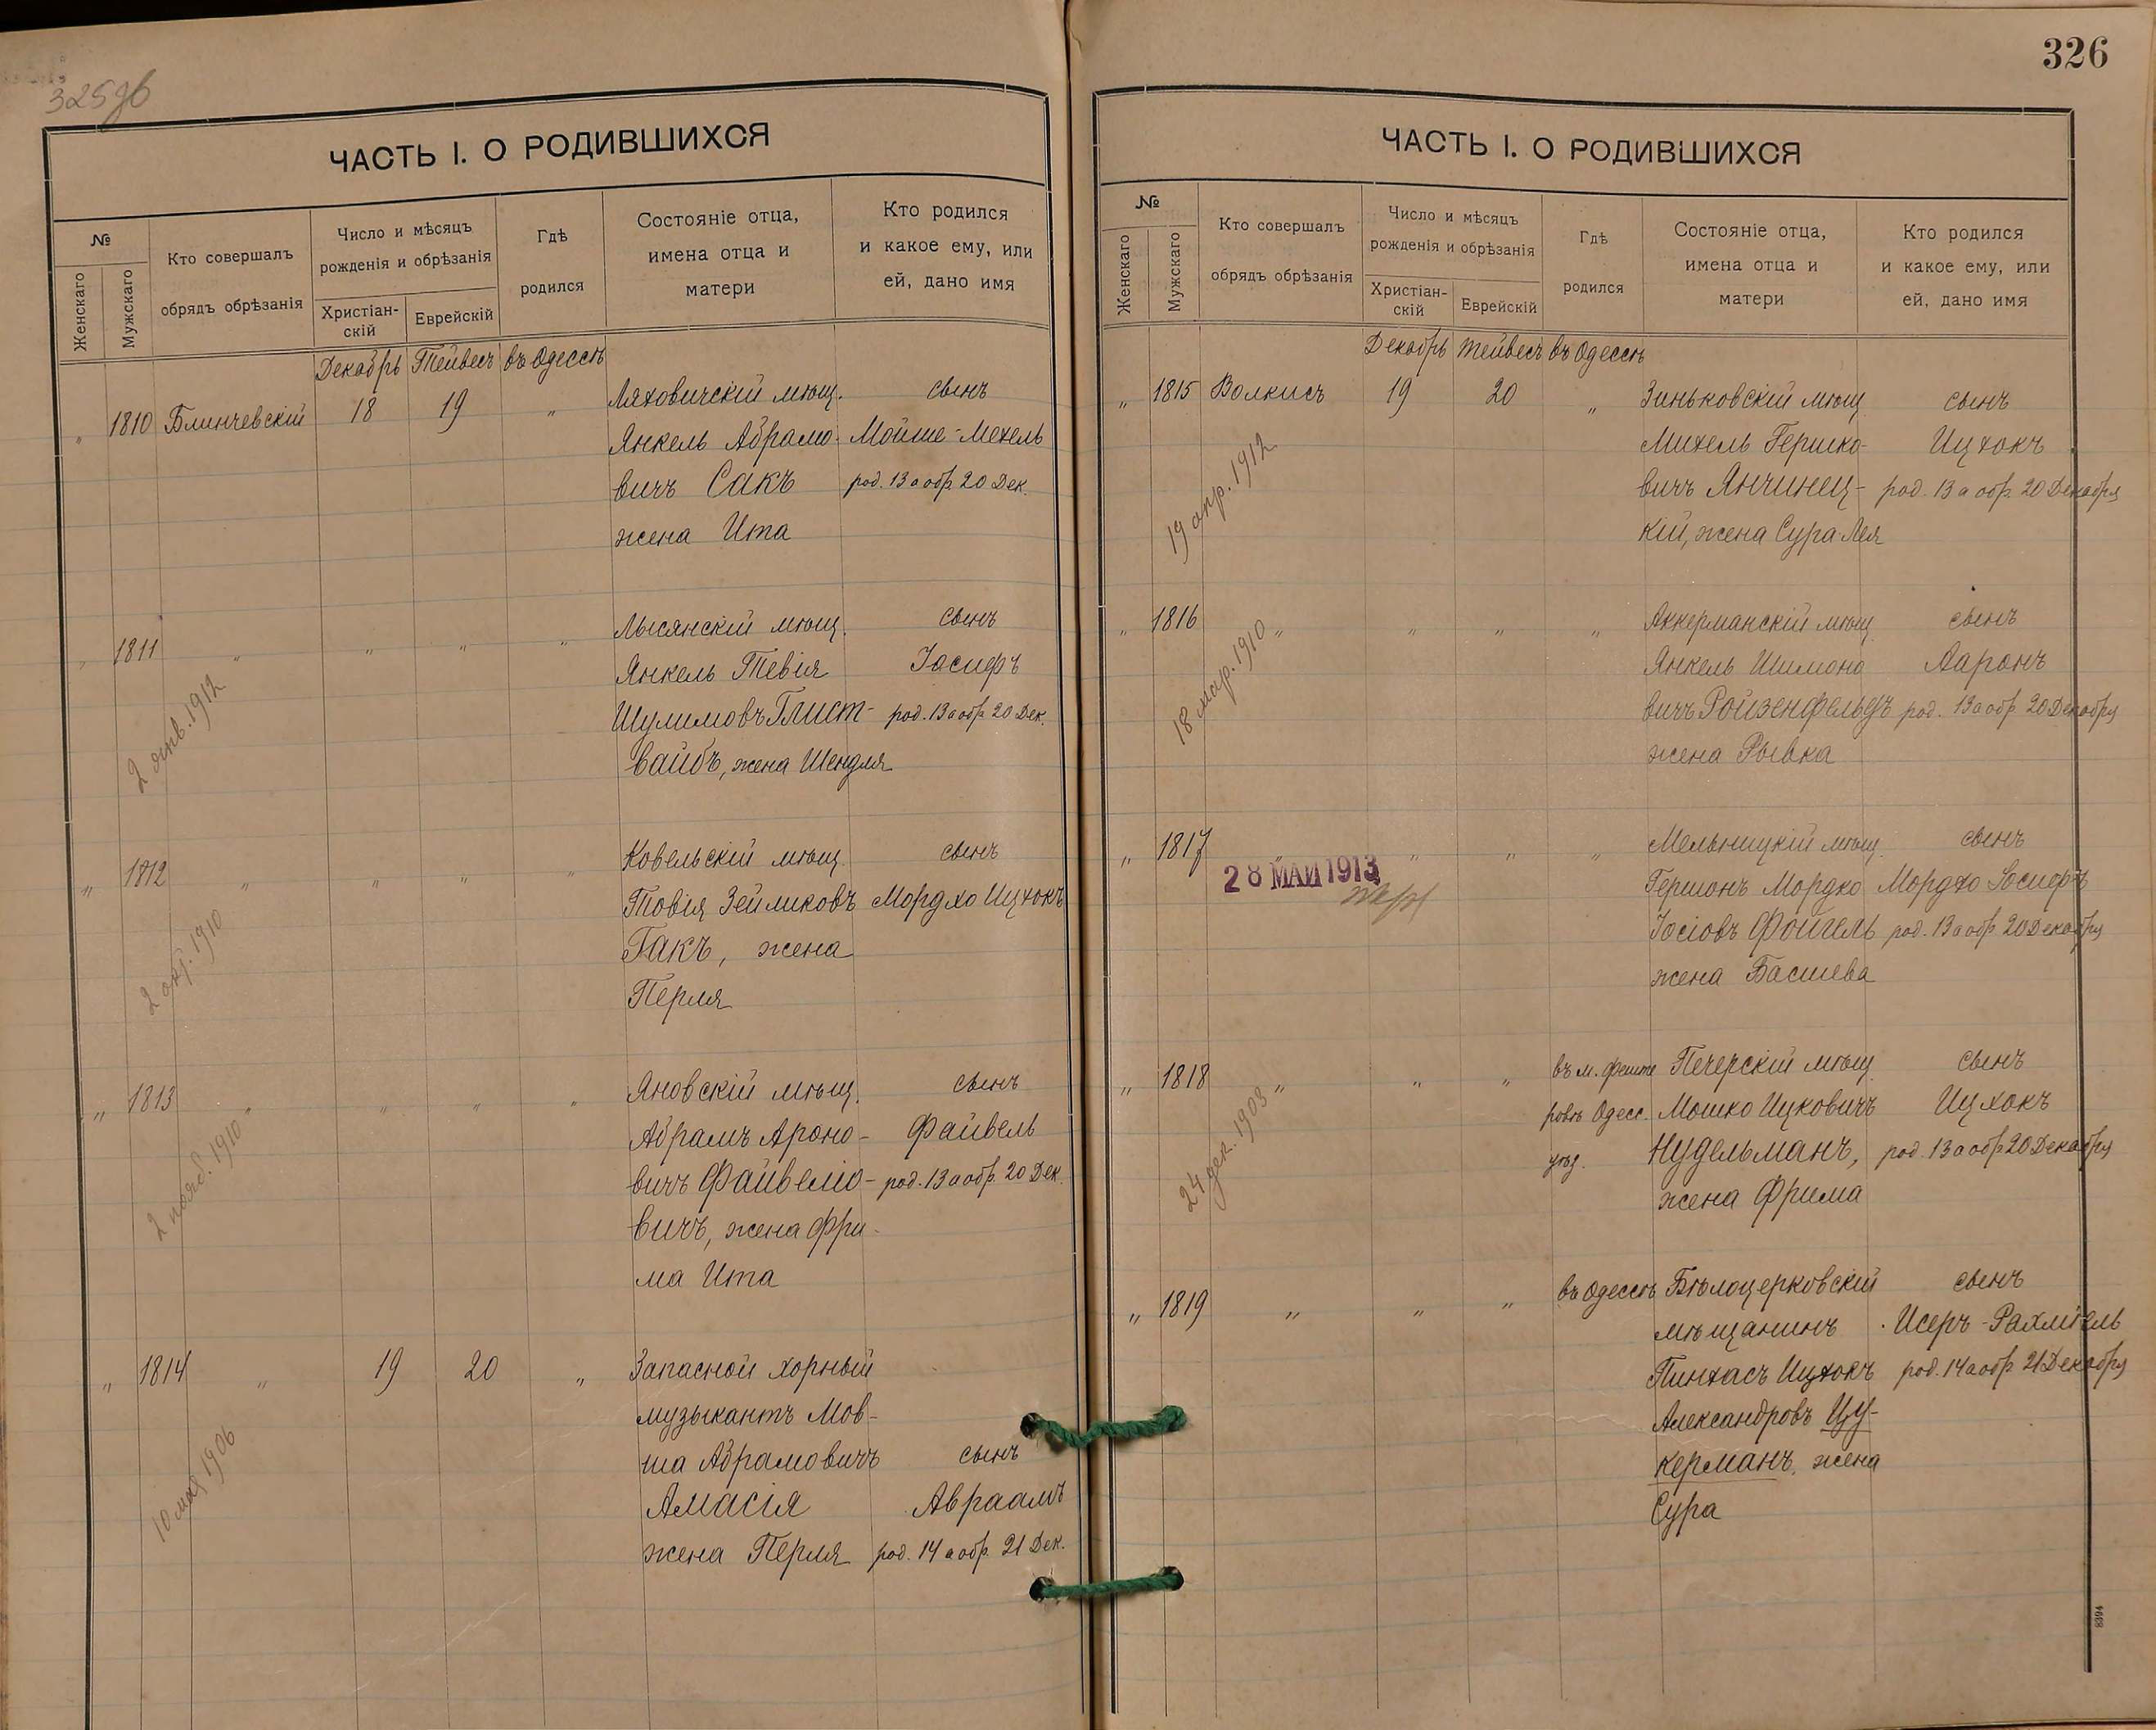 325об
ЧАСТЬ I. О РОДИВШИХСЯ
№
Женскаго
Мужскаго
Кто совершалъ
обрядъ обрѣзанія
Число и мѣсяцъ
рожденія и обрѣзанія
Христіан-
скій
Еврейскій
Гдѣ
родился
Состояніе отца,
имена отца и
матери
Кто родился
и какое ему, или
ей, дано имя
Декабрь Тейвесъ въ Одессѣ
" 1810 Блинчевскій 18 19 " Ляховичскій мѣщ. сынъ
Янкель Абрамо- Мойше-Мехель
вичъ Сакъ род. 13 а обр. 20 Дек.
жена Ита
" 1811 " " " " Лысянскій мѣщ. сынъ
Янкель Тевія Іосифъ
Шулимовъ Глист- род. 13 а обр. 20 Дек.
вайбъ, жена Шендля
2 янв. 1912
" 1812 " " " " Ковельскій мѣщ. сынъ
Товія Зейликовъ Мордхо Ицхокъ
Гакъ, жена
Перля
2 окт. 1910
" 1813 " " " " Яновскій мѣщ. сынъ
Абрамъ Ароно- Файвель
вичъ Файвело- род. 13 а обр. 20 Дек.
вичъ, жена Фри-
ма Ита
2 нояб. 1910
" 1814 " 19 20 " Запасной хорный
музыкантъ Мов-
ша Абрамовичъ сынъ
Амасія Авраамъ
жена Перля род. 14 а обр. 21 Дек.
10 мая 1906
326
ЧАСТЬ I. О РОДИВШИХСЯ
№
Женскаго
Мужскаго
Кто совершалъ
обрядъ обрѣзанія
Число и мѣсяцъ
рожденія и обрѣзанія
Христіан-
скій
Еврейскій
Гдѣ
родился
Состояніе отца,
имена отца и
матери
Кто родился
и какое ему, или
ей, дано имя
Декабрь Тейвесъ въ Одессѣ
" 1815 Волкисъ 19 20 " Зиньковскій мѣщ. сынъ
Михель Гершко- Ицхокъ
вичъ Янчинец- род. 13 а обр. 20 Декабря
кій, жена Сура-Лея
19 апр. 1912
" 1816 " " " " Аккерманскій мѣщ. сынъ
Янкель Шимоно Ааронъ
вичъ Ройзенфельдъ род. 13 а обр 20 Декабря
жена Рывка
18 мар. 1910
" 1817 " " " " Мельницкій мѣщ. сынъ
28 МАИ 1913
Гершонъ Мордко Мордхо Іосифъ
Іосіовъ Фойгель род. 13 а обр 20 Декабря
жена Басшева
" 1818 " " " въ м. Фешта Печерскій мѣщ. сынъ
ровъ Одесс. Мошко Ицковичъ Ицхокъ
уѣз. Нудельманъ, род. 13 а обр 20 Декабря
жена Фрима
24 дек. 1908
" 1819 " " " въ Одессѣ Бѣлоцерковскій сынъ
мѣщанинъ Исеръ-Рахміель
Пинхасъ Ицхокъ род. 14 а обр 21 Декабря
Александровъ Цу-
керманъ, жена
Сура
8394